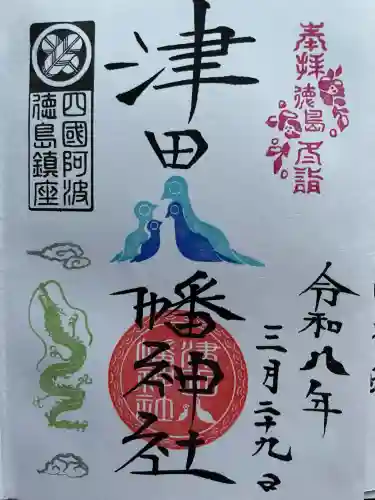 奉拝
徳島
参詣
四國阿波
徳島鎮座
津田
八幡神社
津田
八幡
神社
令和八年
三月二十九日